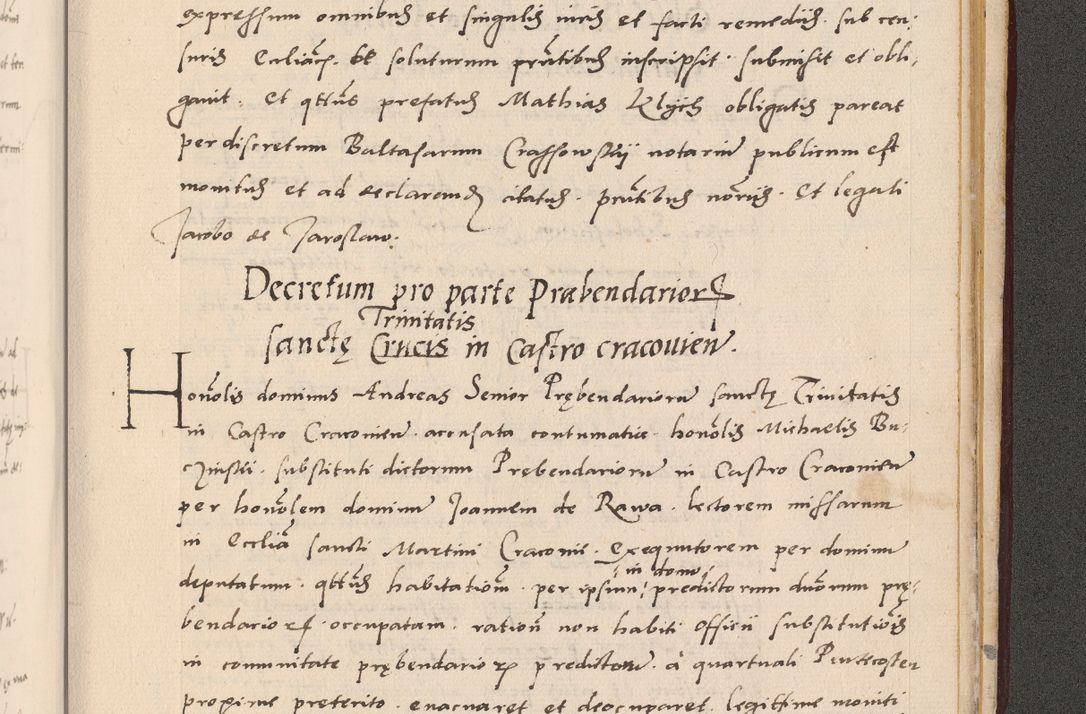 expressum omnibus et singulis iuris et facti remediis. sub cen-
suris Ecclia[rum]. et soluturum prn̄tibus inscripsit. submisit et obli-
gauit. Et qttus prefatus Mathias Klyċh obligatis pareat
per discretum Baltasarum Crassowskij notarium publicum est
monitus et ad declarandum citatus. prn̄tibus nōriis. Et legali
Jacobo de Jaroslaw.
Decretum pro parte Præbendariorum
Trinitatis
sanctę Crucis in Castro cracouien.
Honōlis dominus Andreas Senior Prębendariorum sanctę Trinitatis
in Castro Cracouien. accusata contumatia. honōlis Michaelis Bu-
substituti dictorum Prebendariorum in Castro Cracouien
per honōlem dominum Joannem de Rawa. lectorem missarum
in Eccliā sancti Martini Cracouie. Exequutorem per dominum
in domo
deputatum. qttus habitationem. per ipsum predictorum duorum prę-
bendariorum. occupatam. ratione non habiti officii substitutionis
in comunitate prębendariorum predictorum. a quartuali Penthecosten
proxime preterito. euacuaret et deocuparet. legittime moniti